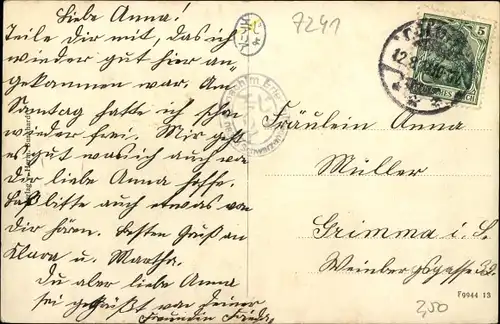 Liebe Anna!
Teile Dir mit, das ich
wieder gut hier an-
gekommen war. Am
Samstag hatte ich schon
wieder frei. Mir geht
es gut was ich auch von
dir liebe Anna hoffe.
Laß bitte auch etwas von
dir hören. Besten Gruß an
Klara u. Martha.
Du aber liebe Anna
sei gegrüßt von deiner
Freundin Frida.
7241
5
12.8
Fräulein Anna
Müller
Grimma i. S.
Weinbergsgasse
F9944 13
2,50